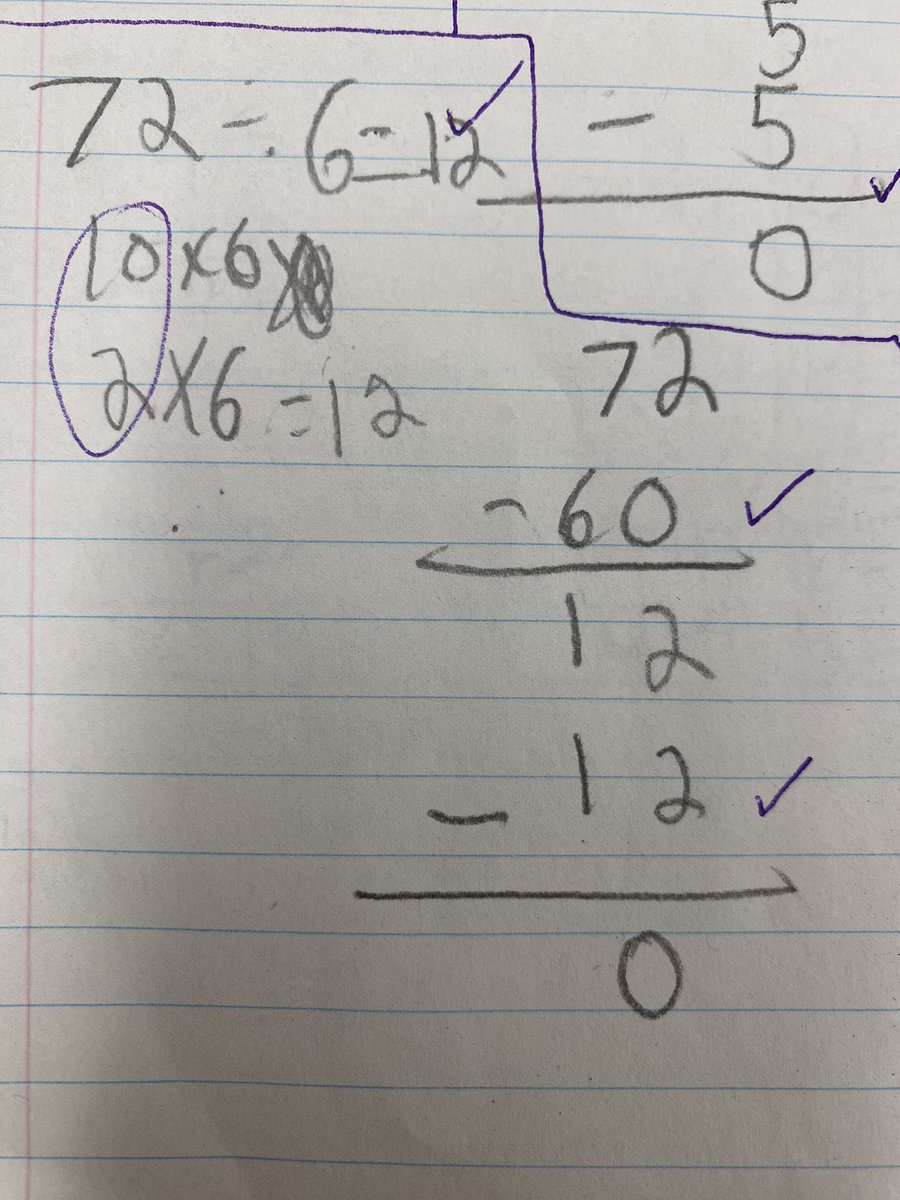 5
- 5
0
72 ÷ 6 = 12
10 x 6
2 x 6 = 12
72
- 60
12
- 12
0